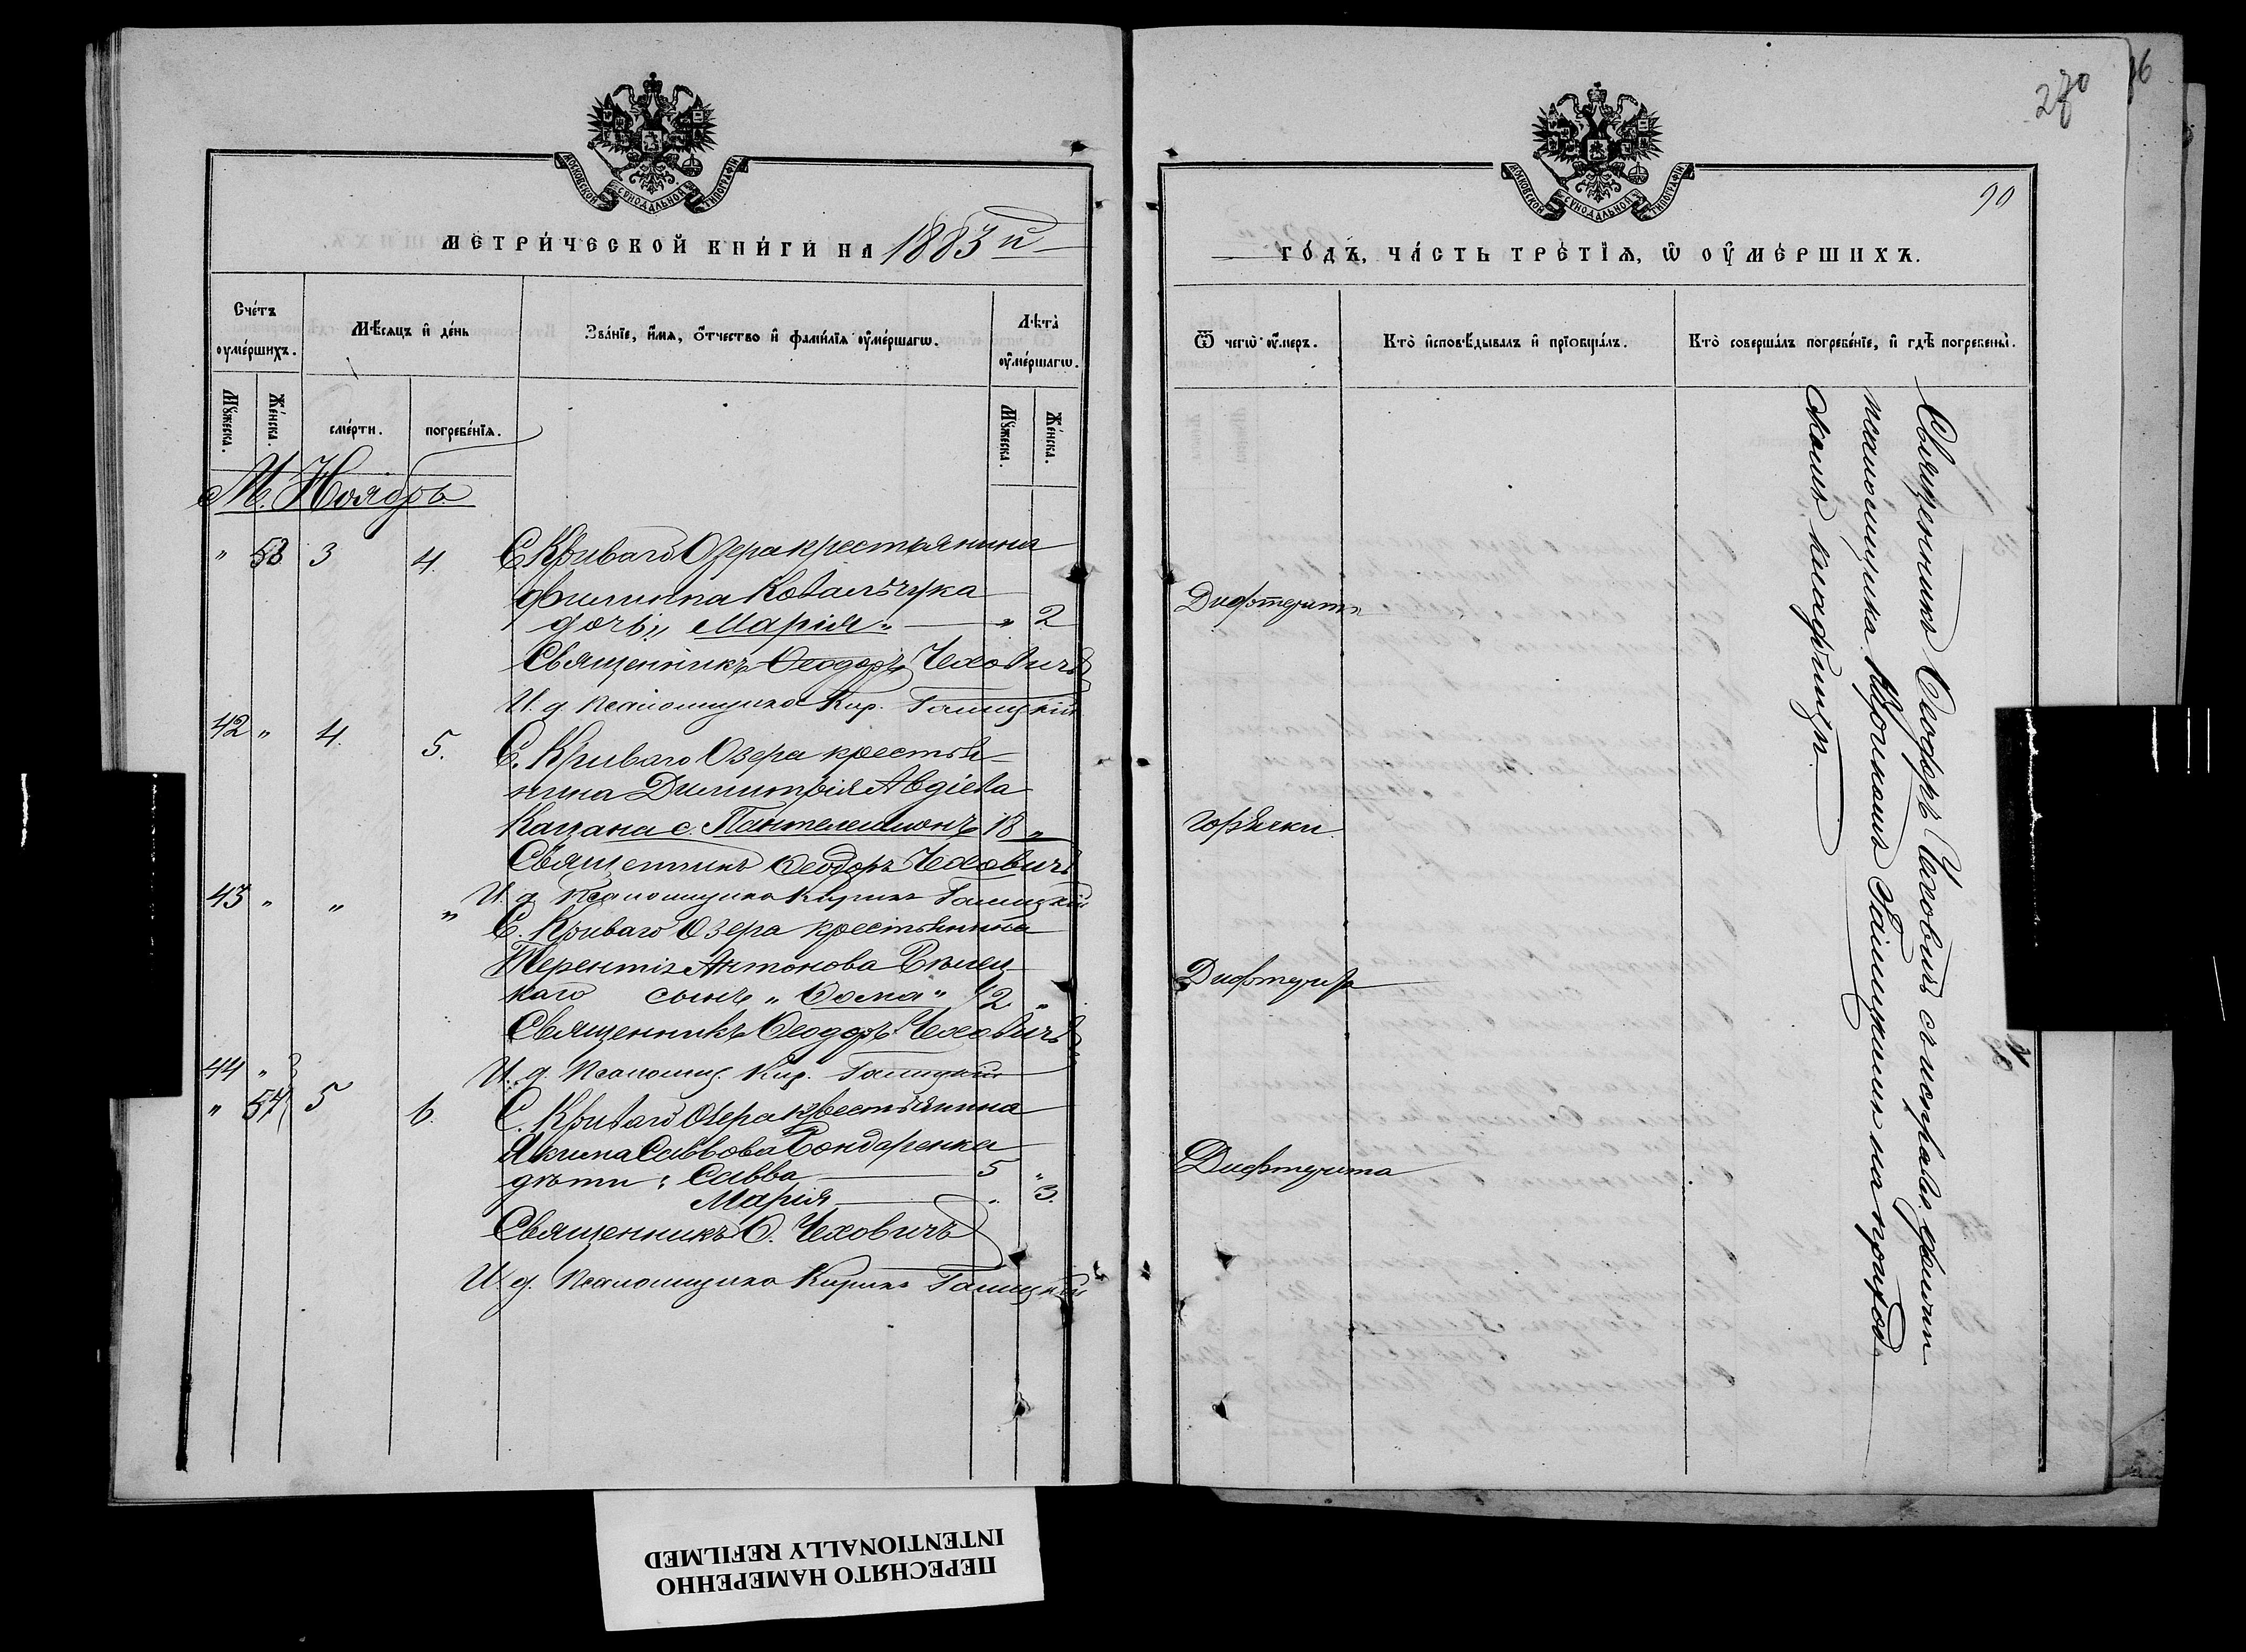 МОСКОВСКОЙ СѴНОДАЛЬНОЙ ТИПОГРАФІИ
МЕТРИ́ЧЕСКОЙ КНИ́ГИ НА 1883 й
Сче́тъ оумє́ршихъ.
Мѣ́сяцъ и де́нь
Зва́нїе, и́мя, о́тчество и фами́лїя оумє́ршагѡ.
Лѣта̀ оумє́ршагѡ.
Мꙋ́жеска.
Же́нска.
сме́рти.
погребе́нїя.
Мꙋ́жеска.
Же́нска.
М. Ноябрь
" 53 3 4. С. Криваго Озера крестьянина
Филиппа Ковальчука
дочь " Марія " — " 2
Священникъ Ѳеодоръ Чеховичъ
И. д. Псаломщика Кир. Галицкій
42 " 4. 5. С. Криваго Озера крестья-
нина Димитрія Авдіева
Кацана с. Пантелеимонъ 13 "
Священникъ Ѳеодоръ Чеховичъ
И. д. Псаломщика Кирикъ Галицкій
43 " " " С. Криваго Озера крестьянина
Терентія Антонова
каго сынъ " Ѳома " 1/2 "
Священникъ Ѳеодоръ Чеховичъ
И. д. Псаломщ. Кир. Галицкій
44 "
" 54 5 6. С. Криваго Озера крестьянина
Якима Саввова Бондаренка
дѣти: Савва — 5 "
Марія — " 3.
Священникъ Ѳ. Чеховичъ
И. д. Псаломщика Кирикъ Галицкій
270
90
МОСКОВСКОЙ СѴНОДАЛЬНОЙ ТИПОГРАФІИ
ГО́ДЪ, ЧА́СТЬ ТРЕ́ТІѦ, Ѡ ОУМЕ́РШИХЪ.
Ѿ чегѡ̀ оу́меръ.
Кто̀ и҆сповѣ́дывалъ и҆ прїѡбща́лъ.
Кто̀ соверша́лъ погребе́нїе, и҆ гдѣ̀ погребены̀.
Дифтерита
горячки
Дифтерита
Дифтерита
Священникъ Ѳеодоръ Чеховичъ съ исправл. должн.
псаломщика Кирикомъ Галицкимъ на приход
скомъ кладбищѣ.
ПЕРЕСНЯТО НАМЕРЕННО
INTENTIONALLY REFILMED